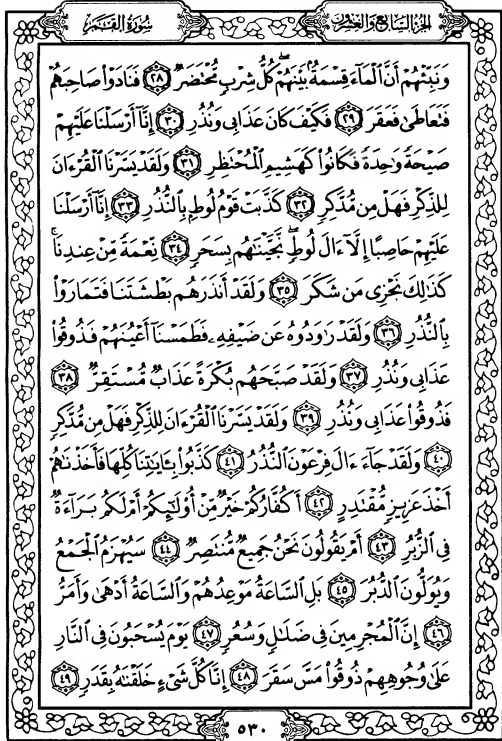 الجزء السابع والعشرون
سورة القمر
وَنَبِّئْهُمْ أَنَّ ٱلْمَآءَ قِسْمَةٌۢ بَيْنَهُمْ ۖ كُلُّ شِرْبٍ مُّحْتَضَرٌ ٢٨ فَنَادَوْا۟ صَاحِبَهُمْ
فَتَعَاطَىٰ فَعَقَرَ ٢٩ فَكَيْفَ كَانَ عَذَابِى وَنُذُرِ ٣٠ إِنَّآ أَرْسَلْنَا عَلَيْهِمْ
صَيْحَةً وَٰحِدَةً فَكَانُوا۟ كَهَشِيمِ ٱلْمُحْتَظِرِ ٣١ وَلَقَدْ يَسَّرْنَا ٱلْقُرْءَانَ
لِلذِّكْرِ فَهَلْ مِن مُّدَّكِرٍ ٣٢ كَذَّبَتْ قَوْمُ لُوطٍۭ بِٱلنُّذُرِ ٣٣ إِنَّآ أَرْسَلْنَا
عَلَيْهِمْ حَاصِبًا إِلَّآ ءَالَ لُوطٍ ۖ نَّجَّيْنَٰهُم بِسَحَرٍ ٣٤ نِّعْمَةً مِّنْ عِندِنَا ۚ
كَذَٰلِكَ نَجْزِى مَن شَكَرَ ٣٥ وَلَقَدْ أَنذَرَهُم بَطْشَتَنَا فَتَمَارَوْا۟
بِٱلنُّذُرِ ٣٦ وَلَقَدْ رَٰوَدُوهُ عَن ضَيْفِهِۦ فَطَمَسْنَآ أَعْيُنَهُمْ فَذُوقُوا۟
عَذَابِى وَنُذُرِ ٣٧ وَلَقَدْ صَبَّحَهُم بُكْرَةً عَذَابٌ مُّسْتَقِرٌّ ٣٨
فَذُوقُوا۟ عَذَابِى وَنُذُرِ ٣٩ وَلَقَدْ يَسَّرْنَا ٱلْقُرْءَانَ لِلذِّكْرِ فَهَلْ مِن مُّدَّكِرٍ
٤٠ وَلَقَدْ جَآءَ ءَالَ فِرْعَوْنَ ٱلنُّذُرُ ٤١ كَذَّبُوا۟ بِـَٔايَٰتِنَا كُلِّهَا فَأَخَذْنَٰهُمْ
أَخْذَ عَزِيزٍ مُّقْتَدِرٍ ٤٢ أَكُفَّارُكُمْ خَيْرٌ مِّنْ أُو۟لَٰٓئِكُمْ أَمْ لَكُم بَرَآءَةٌ
فِى ٱلزُّبُرِ ٤٣ أَمْ يَقُولُونَ نَحْنُ جَمِيعٌ مُّنتَصِرٌ ٤٤ سَيُهْزَمُ ٱلْجَمْعُ
وَيُوَلُّونَ ٱلدُّبُرَ ٤٥ بَلِ ٱلسَّاعَةُ مَوْعِدُهُمْ وَٱلسَّاعَةُ أَدْهَىٰ وَأَمَرُّ
٤٦ إِنَّ ٱلْمُجْرِمِينَ فِى ضَلَٰلٍ وَسُعُرٍ ٤٧ يَوْمَ يُسْحَبُونَ فِى ٱلنَّارِ
عَلَىٰ وُجُوهِهِمْ ذُوقُوا۟ مَسَّ سَقَرَ ٤٨ إِنَّا كُلَّ شَىْءٍ خَلَقْنَٰهُ بِقَدَرٍ ٤٩
٥٣٠